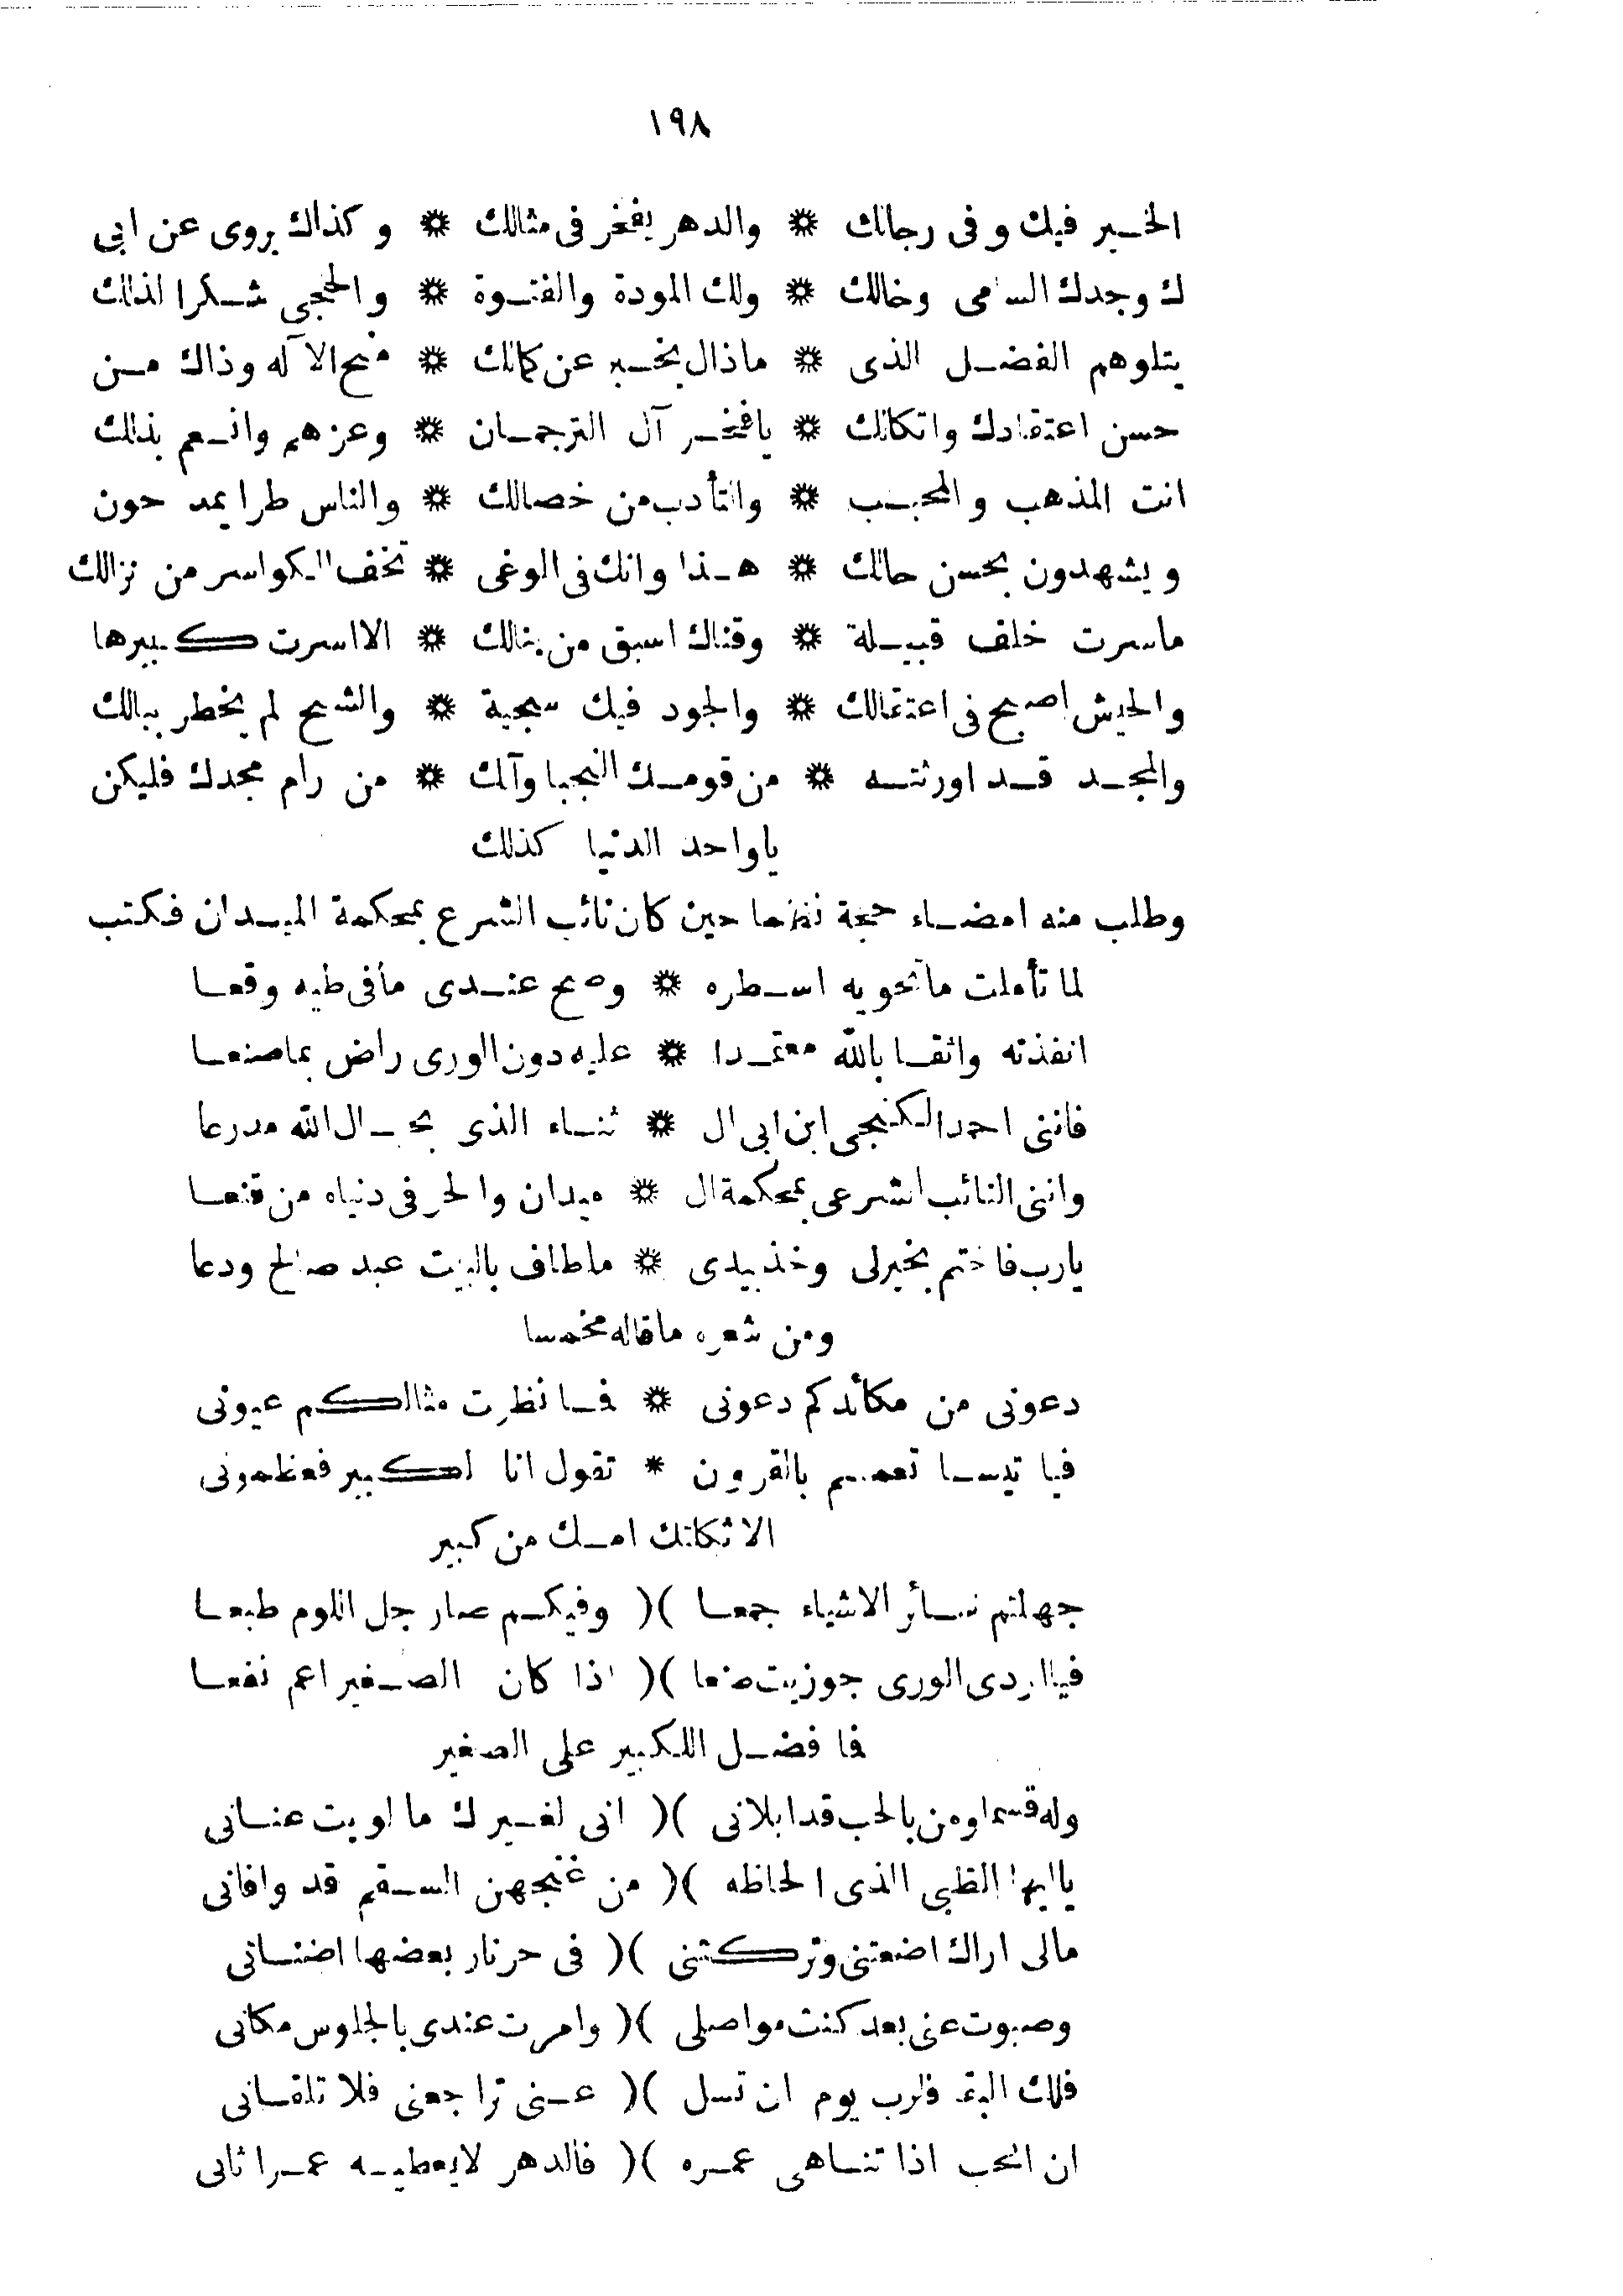 ١٩٨
الخير فيك وفى رجالك * والدهر يفخر فى مثالك * وكذاك يروى عن ابى
ك وجدك السامى وخالك * ولك المودة والفتوة * والحجى شكرا لذلك
يتلوهم الفضل الذى * ماذال يخبر عن كمالك * منح الآله وذاك من
حسن اعتقادك واتكالك * يافخر آل الترجمان * وعزهم وانعم بذلك
انت المذهب والمحبب * والتأدب من خصالك * والناس طرا يمد حون
ويشهدون بحسن حالك * هذا وانك فى الوغى * تخف الكواسر من نزالك
ماسرت خلف قبيلة * وقناك اسبق من نبالك * الااسرت كبيرها
والجيش اصبح فى اعتقالك * والجود فيك سجية * والشح لم يخطر ببالك
والمجد قد اورثته * من قومك النجبا وآلك * من رام مجدك فليكن
ياواحد الدنيا كذلك
وطلب منه امضاء حجة نظمها حين كان نائب الشرع بمحكمة الميدان فكتب
لما تأملت ماتحويه اسطره * وصح عندى مافى طيه وقعا
انفذته واثقا بالله معتمدا * عليه دون الورى راض بماصنعا
فاننى احمد الكنجى ابن ابى ال * ثناء الذى بحبال الله مدرعا
واننى النائب الشرعى بمحكمة ال * ميدان والحر فى دنياه من قنعا
يارب فاختم بخيرلى وخذ بيدى * ماطاف بالبيت عبد صالح ودعا
ومن شعره ماقاله مخمسا
دعونى من مكائدكم دعونى * فما نظرت مثالكم عيونى
فيا تيسا تعمم بالقرون * تقول انا الكبير فعظمونى
الا ثكلتك امك من كبير
جهلتم سائر الاشياء جمعا )( وفيكم صار جل اللوم طبعا
فيااردى الورى جوزيت صنعا )( اذا كان الصغير اعم نفعا
فما فضل الكبير على الصغير
وله قسما ومن بالحب قد ابلانى )( انى لغير ك ما لويت عنانى
ياايها الظبى الذى الحاظه )( من غنجهن السقم قد وافانى
مالى اراك اضعتنى وتركتنى )( فى حرنار بعضها اضنانى
وصبوت عنى بعد كنت مواصلى )( وامرت عندى بالجلوس مكانى
فلك البقا فلرب يوم ان تسل )( عنى تراجعنى فلا تلقانى
ان المحب اذا تناهى عمره )( فالدهر لايعطيه عمرا ثانى